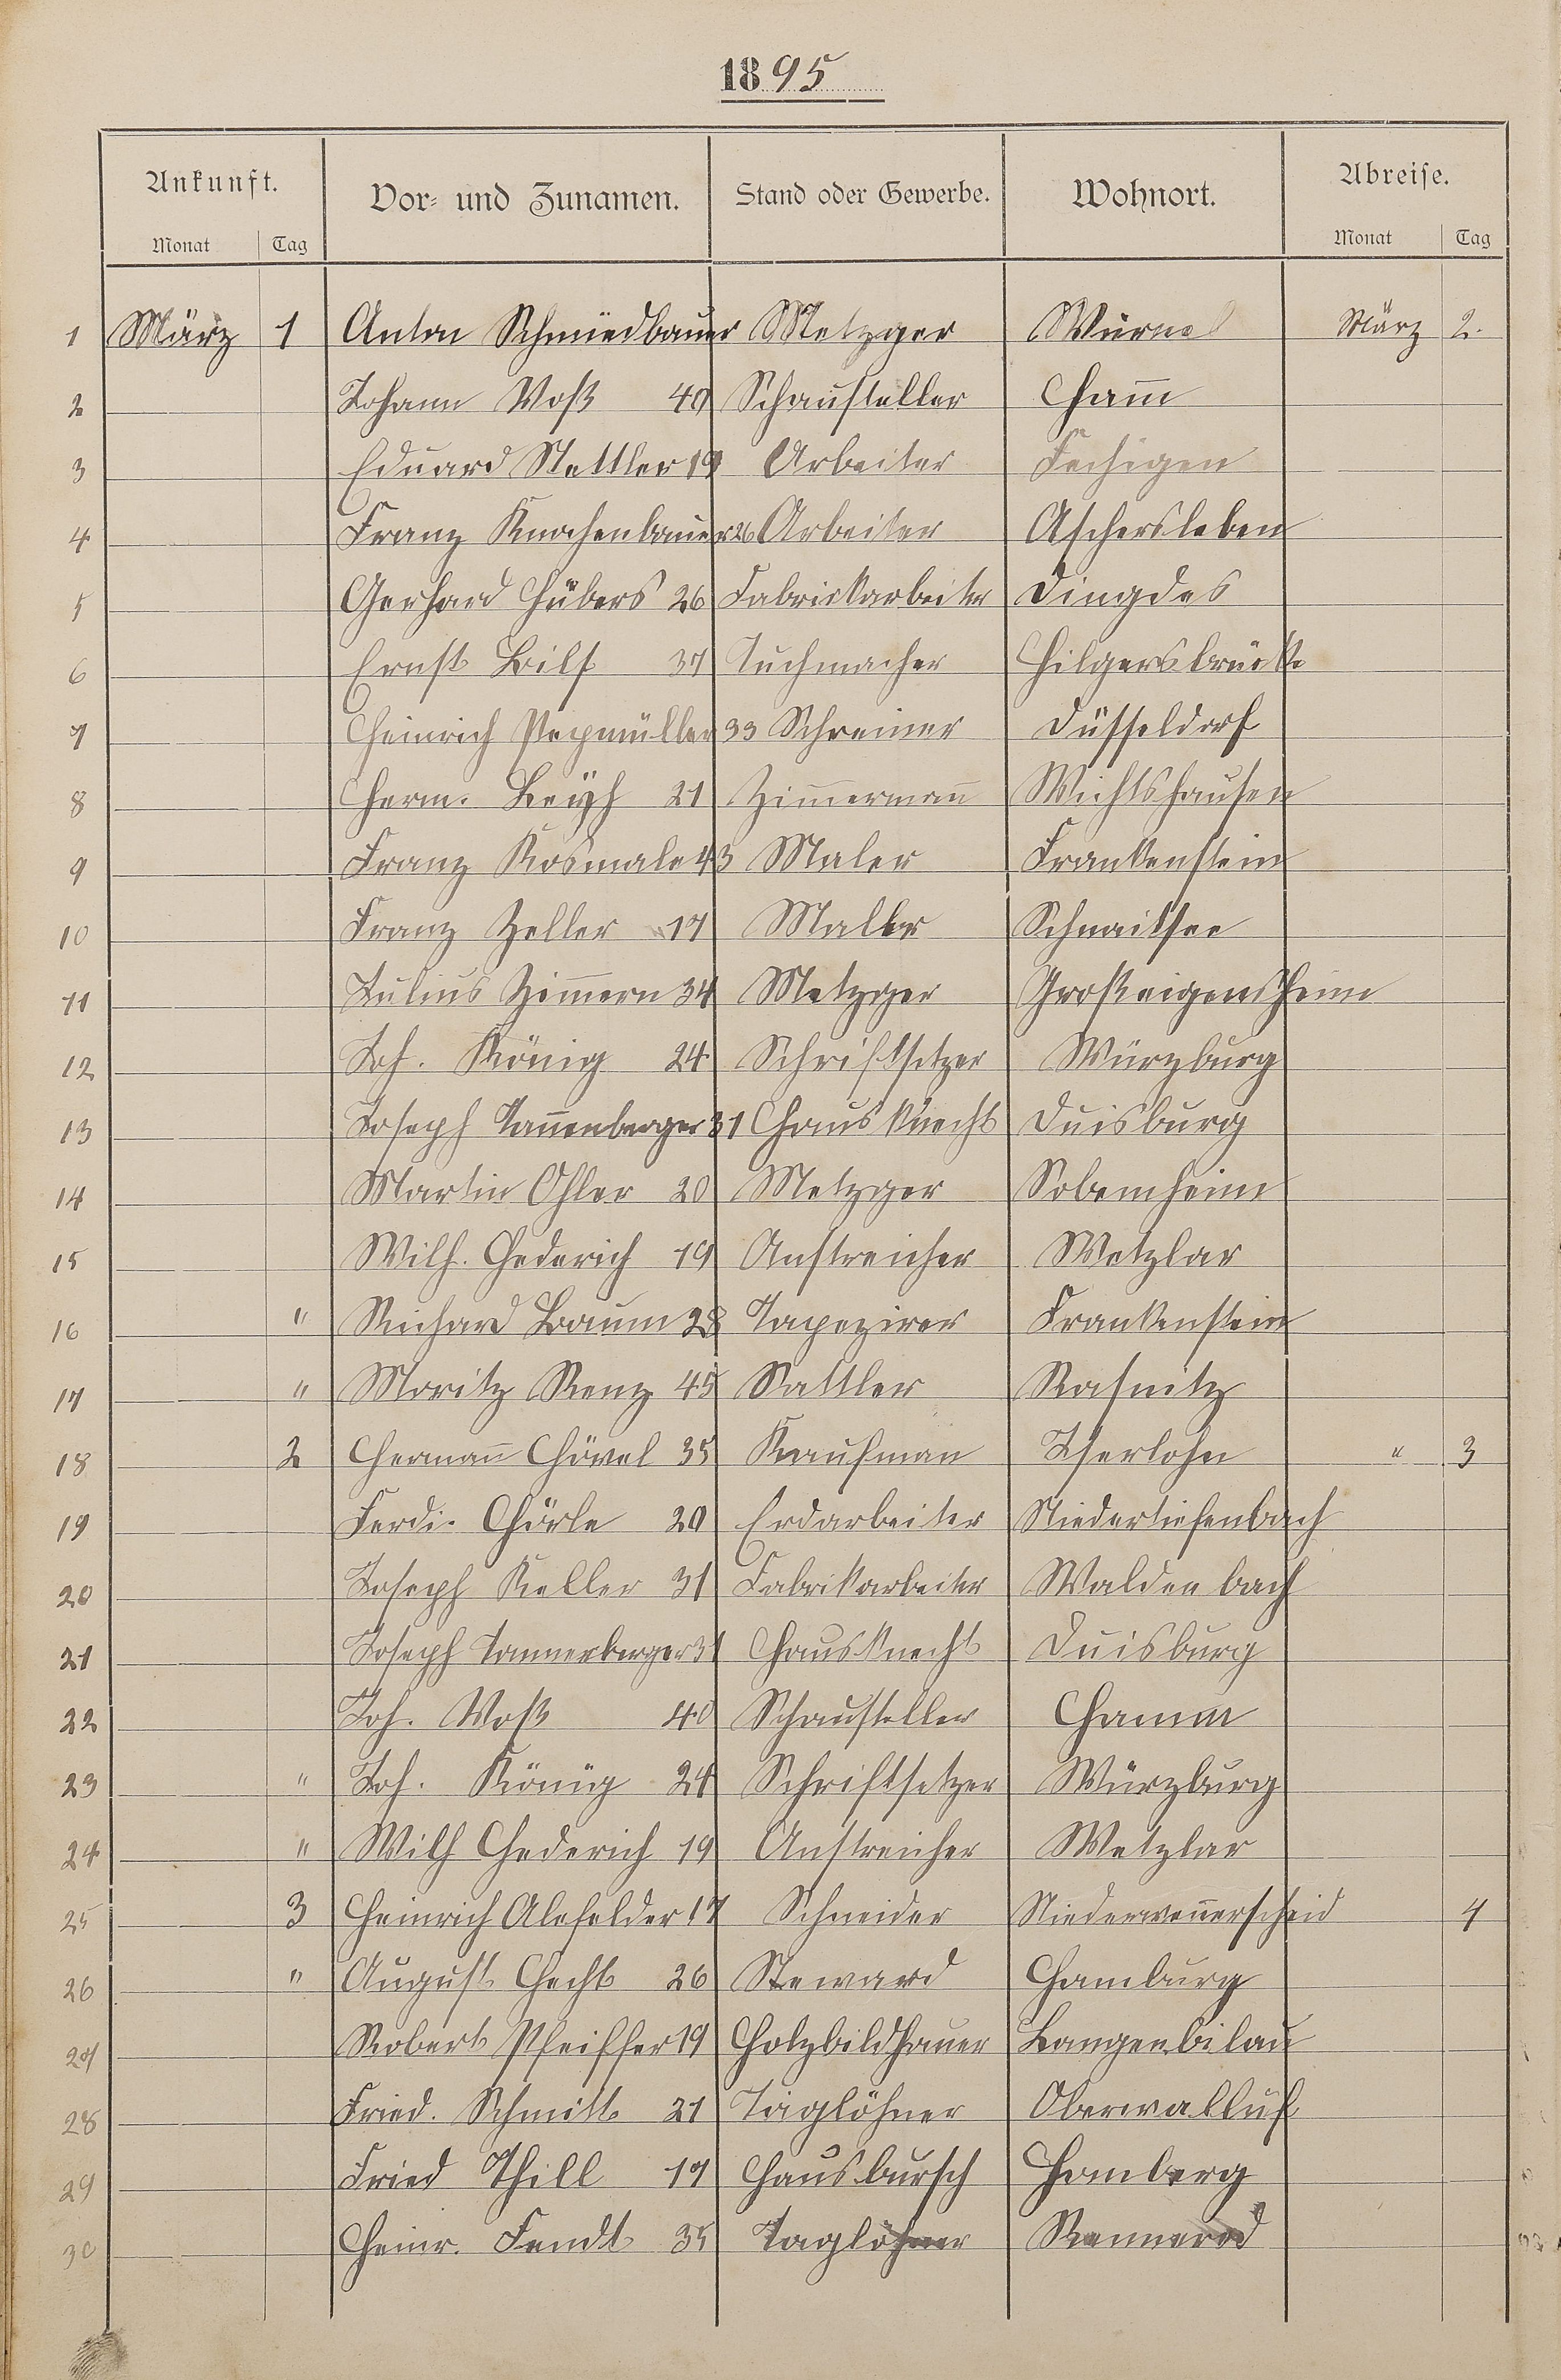 1895
Ankunft. Vor- und Zunamen. Stand oder Gewerbe. Wohnort. Abreise.
Monat Tag Monat Tag
1 März 1 Anton Schmiedbauer Metzger März 2.
2 Johann Voß 40 Schausteller Ham̄
3 Eduard Stettler 19 Arbeiter Fechigen
4 Franz Knochenbauer 26 Arbeiter Aschersleben
5 Gerhard Hübers 26 Fabrickarbeiter Dingdes
6 Ernst 37 Tuchmacher Hilgersbrück
7 Heinrich Pepmüller 33 Schreiner Düsseldorf
8 Herm. 21 Zim̄erman̄ Wichtshausen
9 Franz Kosmale 43 Maler Frankenstein
10 Franz Zeller 17 Maller Schnaitsee
11 Julius Zim̄ern 34 Metzger
12 Joh. König 24 Schriftsetzer Würzburg
13 Joseph Tan̄enberger 31 Hausknecht Duisburg
14 Martin Ohler 20 Metzger Sobernheim
15 Wilh. Hederich 19 Anstreicher Wetzlar
16 " Richard Baum 28 Tapezirer Frankenstein
17 " Moritz Renz 45 Sattler Rasnitz
18 2 Herman̄ Hövel 35 Kaufman Iserlohn " 3
19 Ferdi. Hörle 20 Erdarbeiter Niedertiefenbach
20 Joseph Keller 31 Fabrikarbeiter Waldenbach
21 Joseph Tannenberger 31 Hausknecht Duisburg
22 Joh. Voß 40 Schausteller Hamm
23 " Joh. König 24 Schriftsetzer Würzburg
24 " Wilh Hederich 19 Anstreicher Wetzlar
25 3 Heinrich Alefelder 17 Schneider Niederwen̄erscheid 4
26 " August Hecht 26 Steward Hamburg
27 Robert Pfeiffer 19 Holzbildhauer Langenbilau
28 Fried. Schmitt 21 Taglöhner Oberwalluf
29 Fried Thill 17 Hausbursch Homberg
30 Heinr. Fendt 35 Taglöhner Rennerod